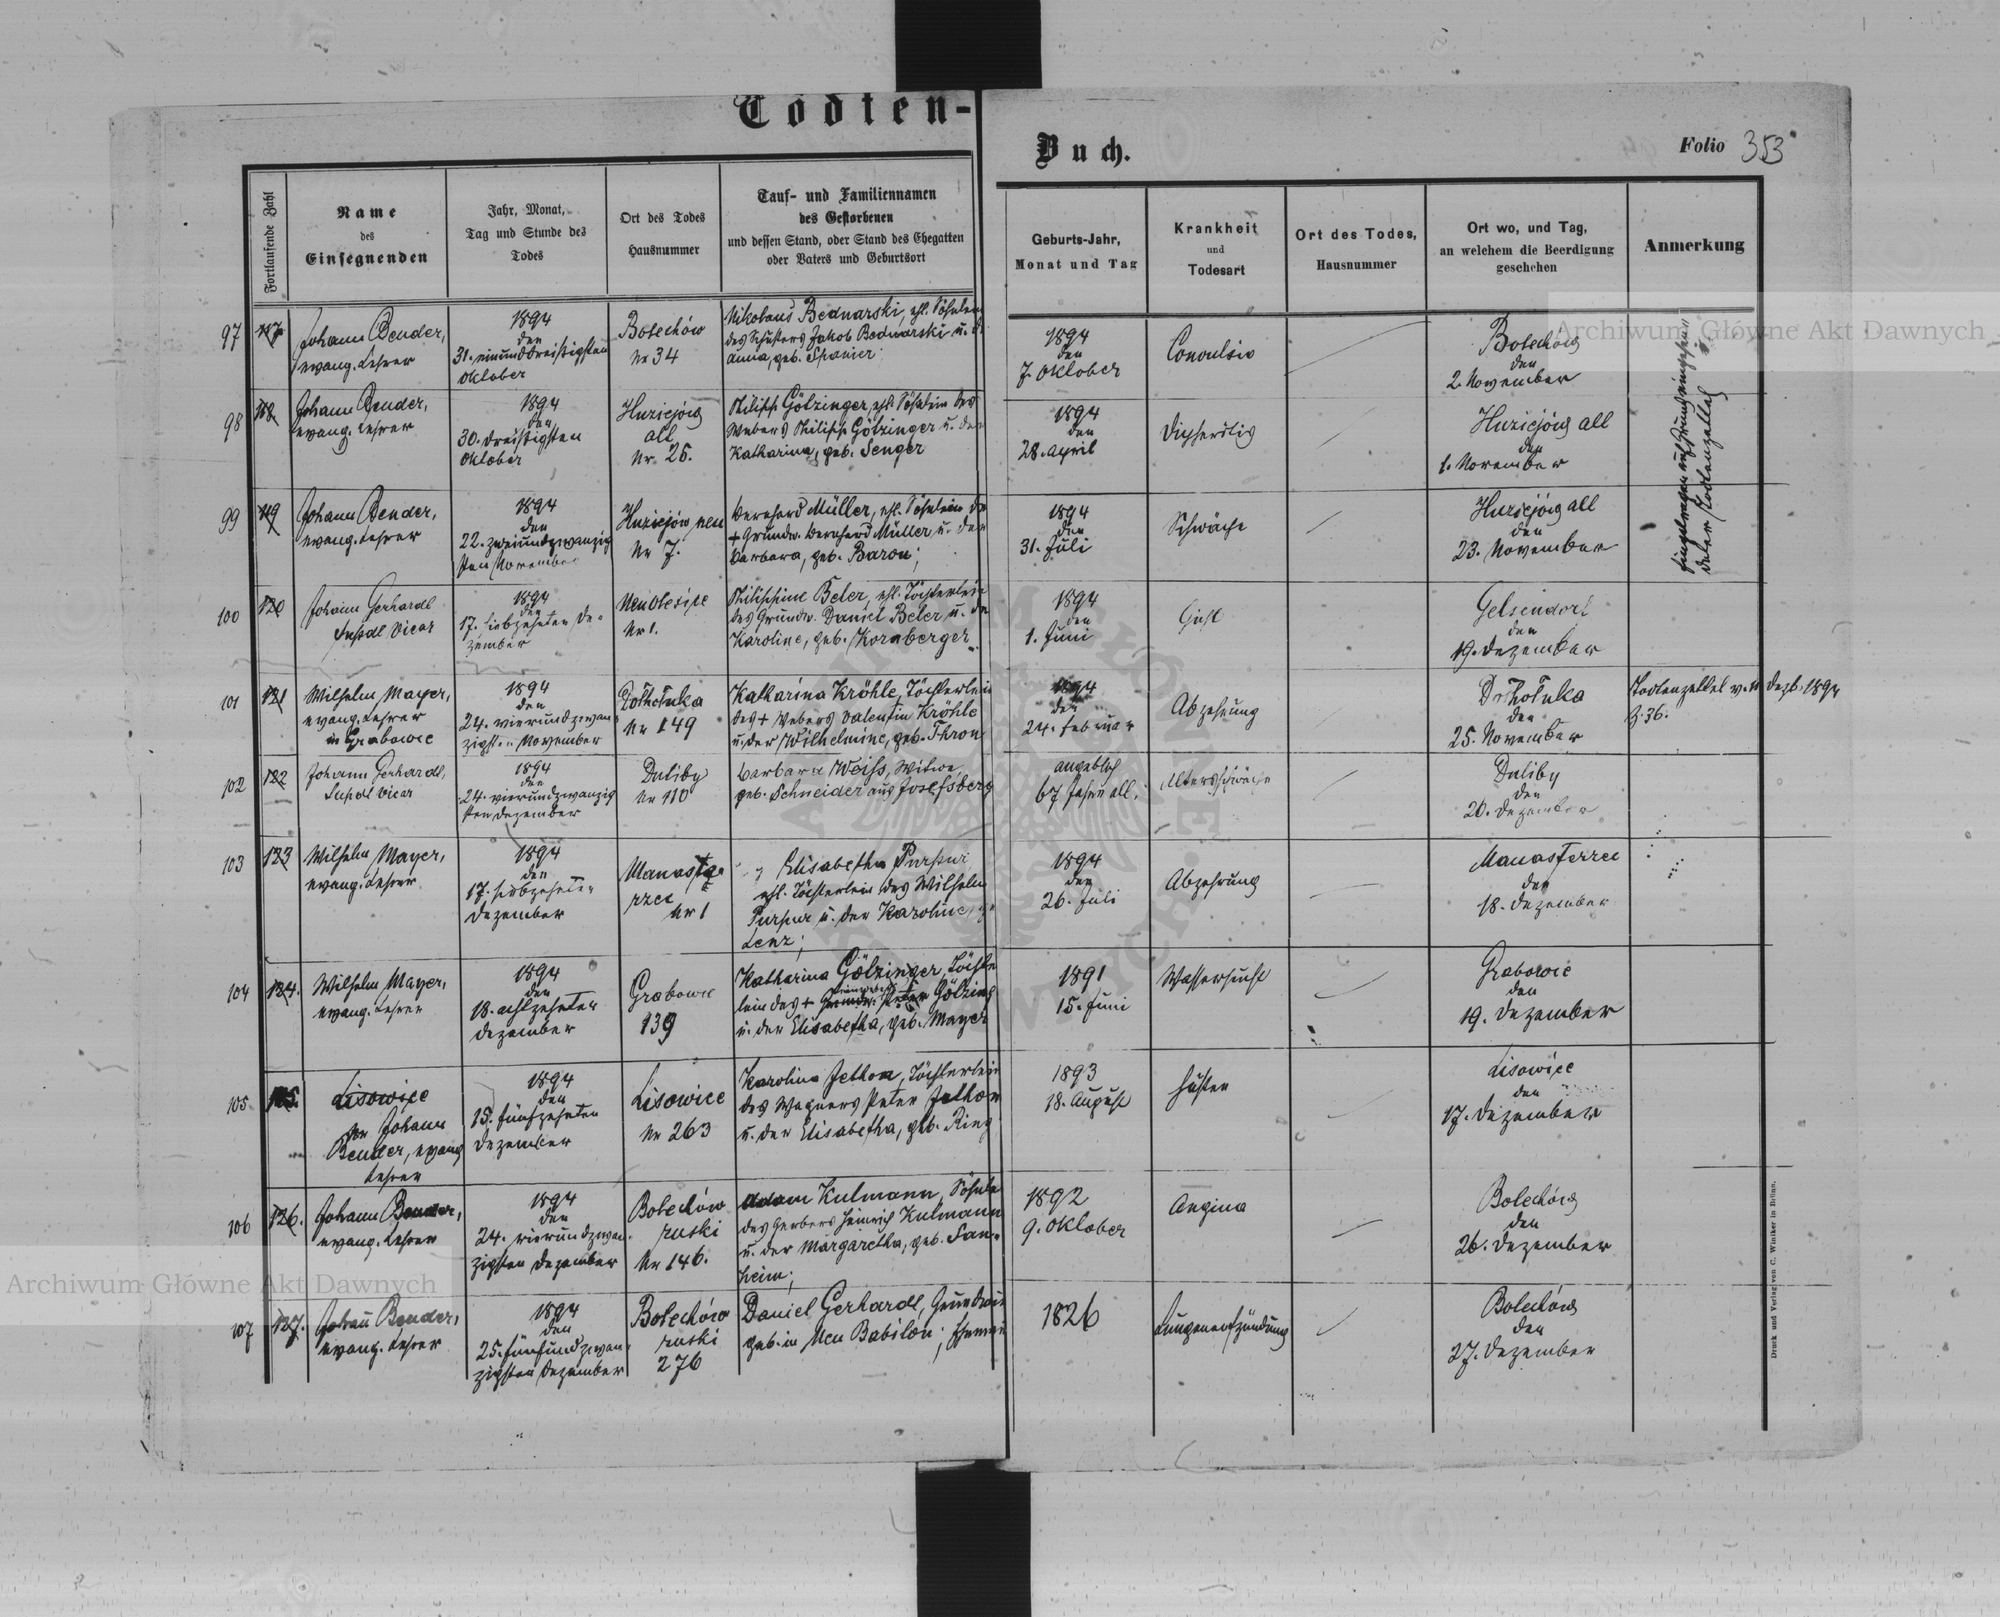 Todten-
Buch.
Folio 353
Fortlaufende Zahl
Name
des
Einsegnenden
Jahr, Monat,
Tag und Stunde des
Todes
Ort des Todes
Hausnummer
Tauf- und Familiennamen
des Gestorbenen
und dessen Stand, oder Stand des Ehegatten
oder Vaters und Geburtsort
Geburts-Jahr,
Monat und Tag
Krankheit
und
Todesart
Ort des Todes,
Hausnummer
Ort wo, und Tag,
an welchem die Beerdigung
geschehen
Anmerkung
97 117
Johann Bender,
evang. Lehrer
1894
den
31. einunddreißigsten
Oktober
Bolechów
Nr 34
Nikolaus Bednarski, ehl. Söhnlein
des Schusters Jakob Bednarski u. d.
Anna, geb. Spanier
1894
den
7. Oktober
Convulsio
Bolechów
den
2. November
98 118
Johann Bender,
evang. Lehrer
1894
den
30. dreißigsten
Oktober
Huziejów
alt
Nr. 25.
Philipp Götzinger, ehl. Söhnlein des
Webers Philipp Götzinger u. der
Katharina, geb. Senger
1894
den
28. April
Diphertis
Huziejów alt
den
1. November
99 119
Johann Bender,
evang. Lehrer
1894
den
22. zweiundzwanzig
sten November
Huziejów neu
Nr 7.
Bernhard Müller, ehl. Söhnlein de
+ Grundw. Bernhard Müller u. der
Barbara, geb. Baron;
1894
den
31. Juli
Schwäche
Huziejów alt
den
23. November
100 120
Johann Gerhardt
Supdt Vicar
1894
den
17. siebzehnten De-
zember
Neu Olesice
Nr 1.
Philippine Beler, ehl. Töchterlein
des Grundw. Daniel Beler u. de
Karoline, geb. Kornberger
1894
den
1. Juni
Gicht
Gelsendorf
den
19. Dezember
101 121
Wilhelm Mayer,
evang. Lehrer
in Grabowce
1894
den
24. vierundzwan-
zigsten November
Dołhołuka
Nr 149
Katharina Kröhle, Töchterlein
des + Webers Valentin Kröhle
u. der Wilhelmine, geb. Thron
1894
den
24. Februar
Abzehrung
Dołhołuka
den
25. November
Todtenzettel v. 11 Dezb. 1894
Z. 36.
102 122
Johann Gerhardt,
Supdt Vicar
1894
den
24. vierundzwanzig
sten Dezember
Duliby
Nr 110
Barbara Weiss, Witwe
geb. Schneider aus Josefsberg
angeblich
67 Jahre alt,
Altersschwäche
Duliby
den
26. Dezember
103 123
Wilhelm Mayer,
evang. Lehrer
1894
den
17. siebzehnten
Dezember
Manaste
rzec
Nr 1
Elisabetha Purpur
ehl. Töchterlein des Wilhelm
Purpur u. der Karoline, ge
Lenz;
1894
den
26. Juli
Abzehrung
Manasterzec
den
18. Dezember
104 124.
Wilhelm Mayer,
evang. Lehrer
1894
den
18. achtzehnten
Dezember
Grabowce
139
Katharina Götzinger, Töchter
lein des + Grundw. Peter Götzing
u. der Elisabetha, geb. Mayer
1891
15. Juni
Wassersucht
Grabowce
den
19. Dezember
105 125.
Lisowice
Johann
Bender, evang
Lehrer
1894
den
15. fünfzehnten
Dezember
Lisowice
Nr 263
Karolina Jethon, Töchterlein
des Wagners Peter Jethon
u. der Elisabetha, geb. Ring
1893
18. August
Husten
Lisowice
den
17. Dezember
106 126.
Johann Bender,
evang. Lehrer
1894
den
24. vierundzwan-
zigsten Dezember
Bolechów
ruski
Nr 146.
Adam Kulmann, Söhnle
des Gerbers Heinrich Kulmann
u. der Margaretha, geb. San-
heim;
1892
9. Oktober
Angina
Bolechów
den
26. Dezember
107 127.
Johann Bender,
evang. Lehrer
1894
den
25. fünfundzwan-
zigsten Dezember
Bolechów
ruski
276
Daniel Gerhardt, Grundwir
geb. in Neu Babilon;
1826
Lungenentzündung
Bolechów
den
27. Dezember
Druck und Verlag von C. Winiker in Brünn.
Archiwum Główne Akt Dawnych
Archiwum Główne Akt Dawnych